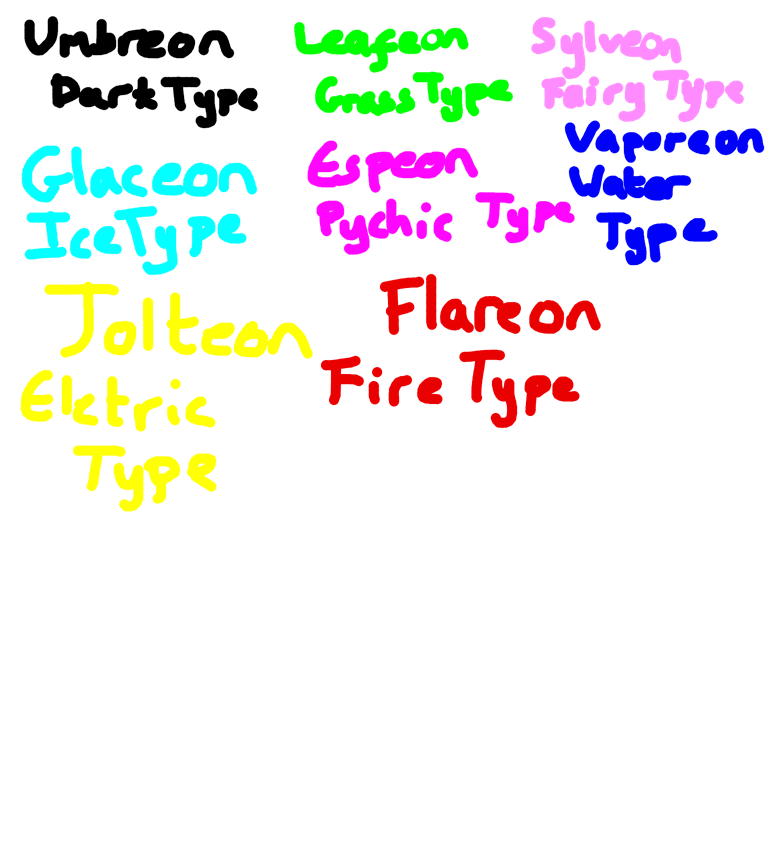 Umbreon
Dark Type
Leafeon
Grass Type
Sylveon
Fairy Type
Glaceon
Ice Type
Espeon
Pychic Type
Vaporeon
Water
Type
Jolteon
Elctric
Type
Flareon
Fire Type